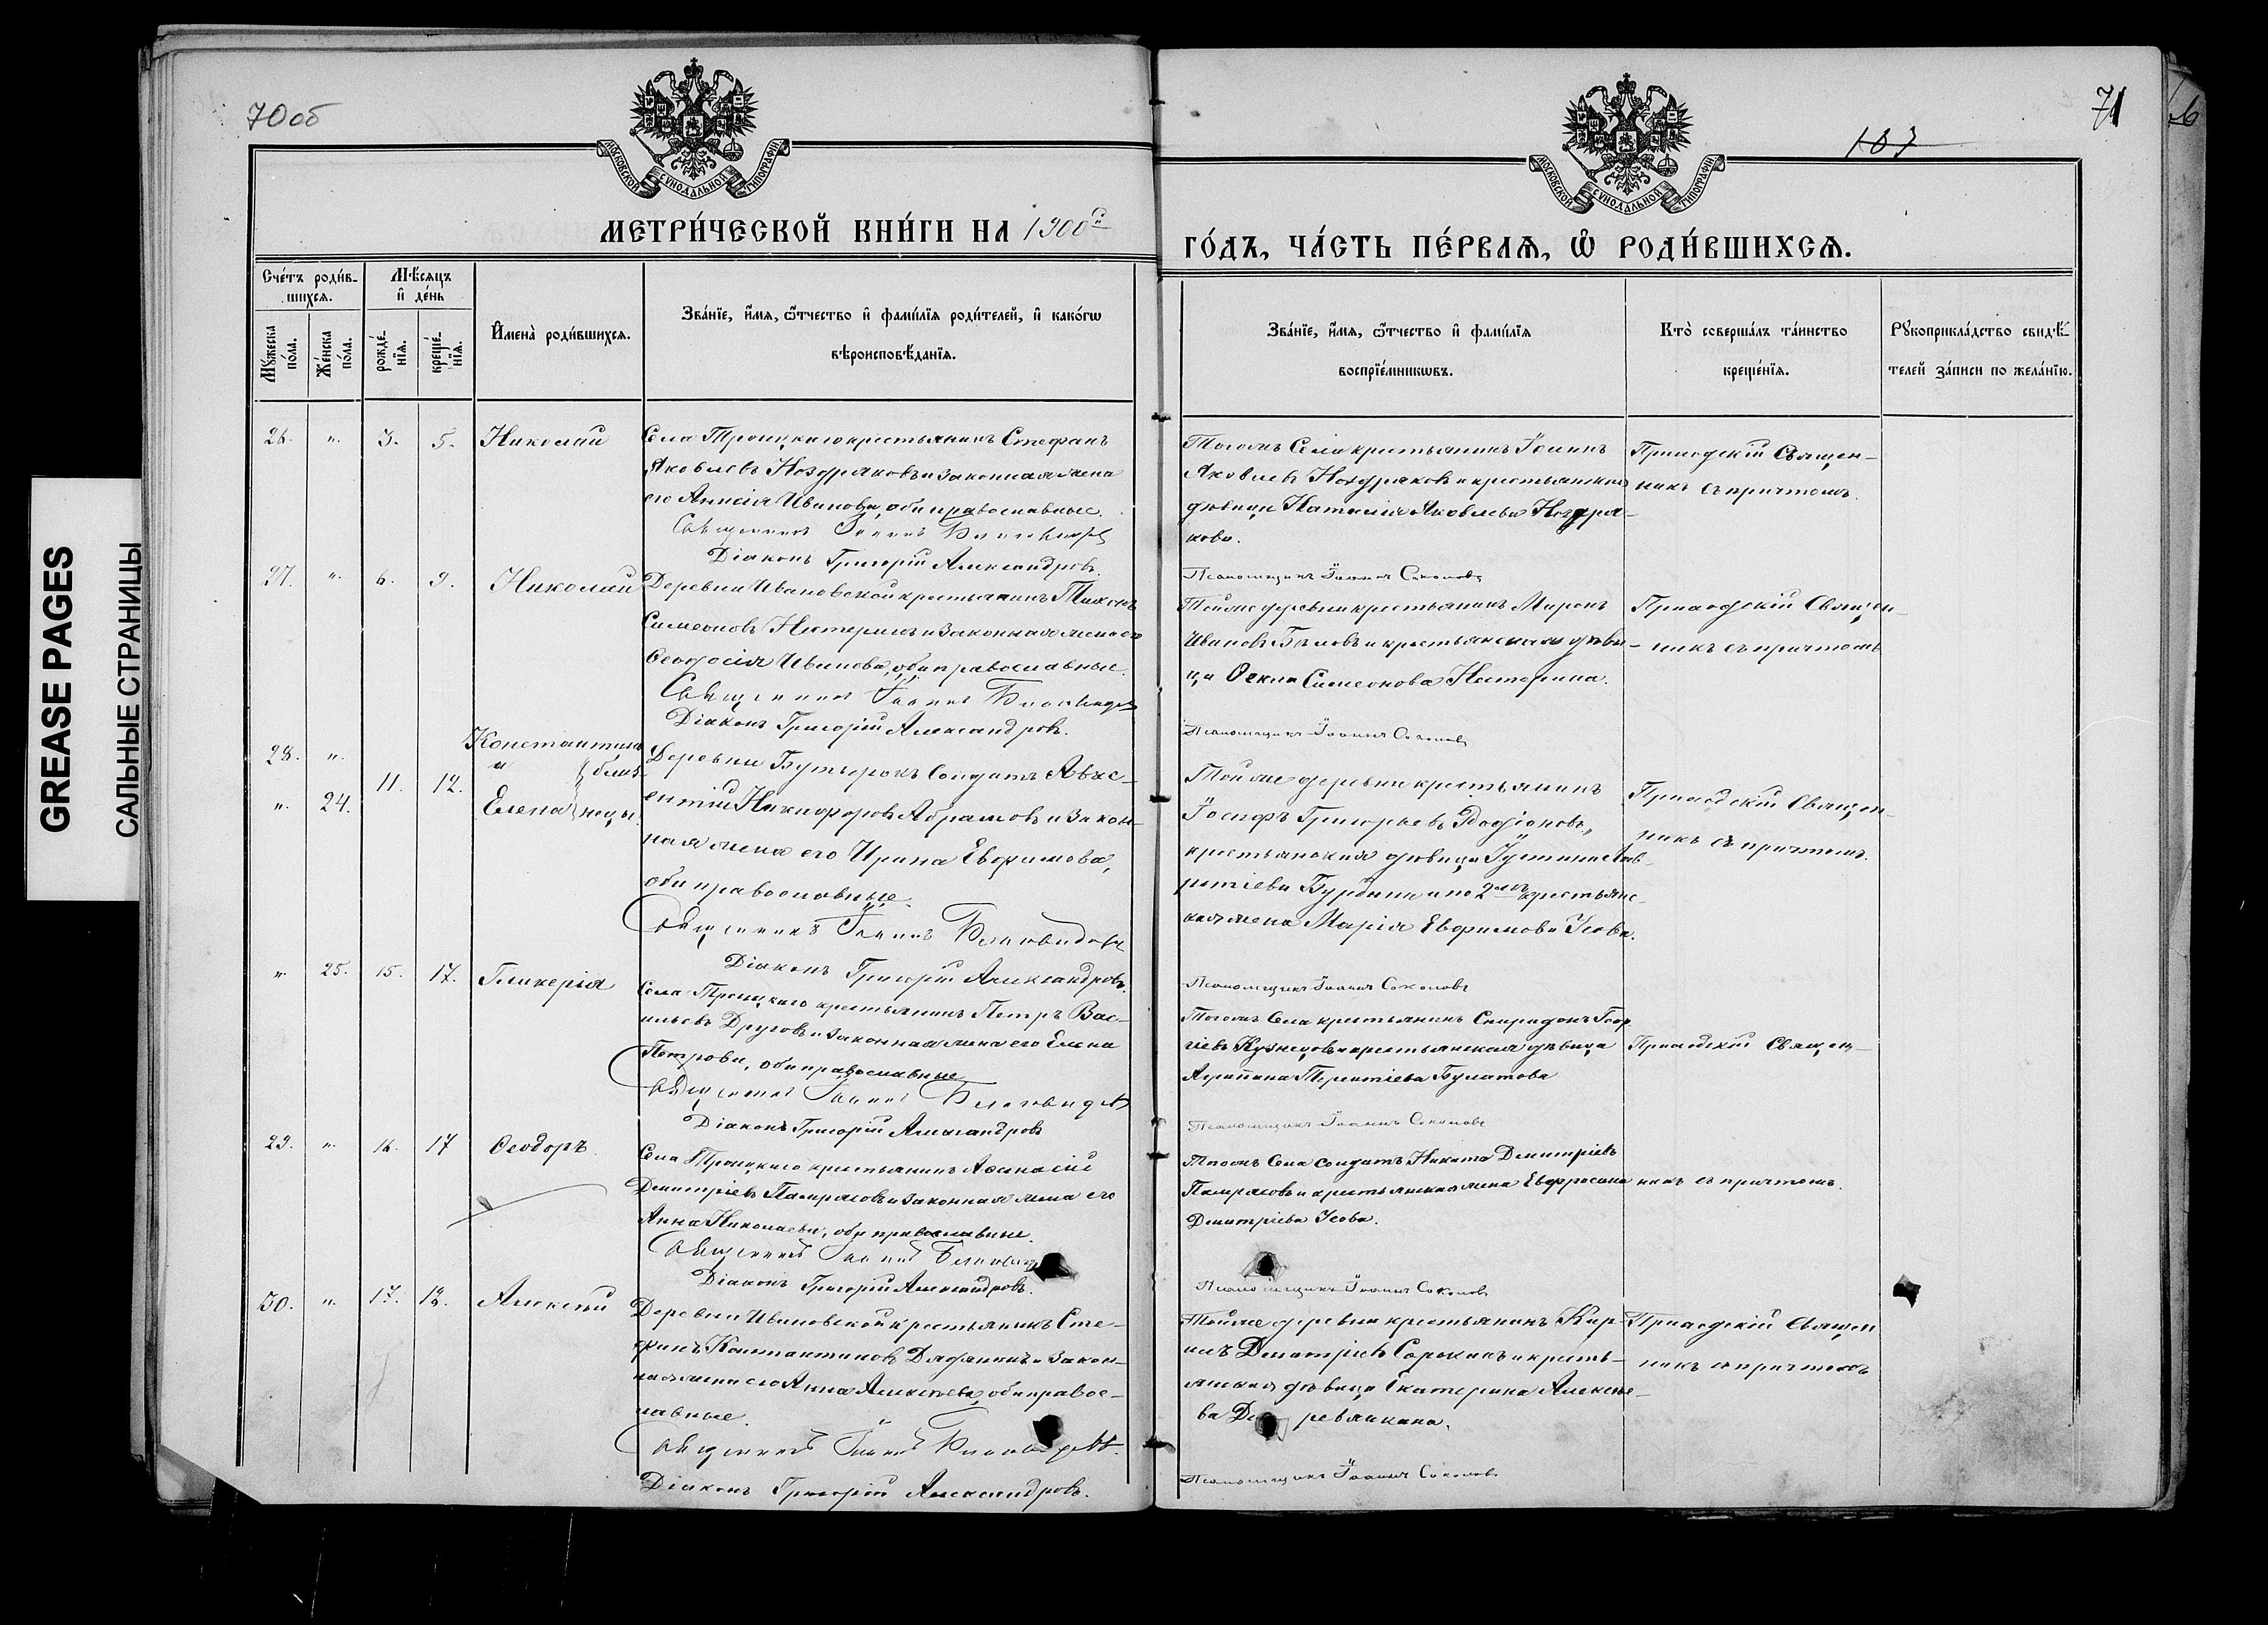 70об
71
МОСКОВСКОЙ СѴНОДАЛЬНОЙ ТИПОГРАФІИ
МОСКОВСКОЙ СѴНОДАЛЬНОЙ ТИПОГРАФІИ
МЕТРИ́ЧЕСКОЙ КНИ́ГИ НА 1900й
ГО́ДЪ, ЧА́СТЬ ПЕ́РВАѦ, Ѿ РОДИ́ВШИХСѦ.
Сче́тъ роди́в-
шихсѧ.
Мꙋжеска
по́ла.
Же́нска
по́ла.
Мѣ́сѧцъ
и҆ де́нь
рожде́-
нїѧ.
креще́-
нїѧ.
И҆мена̀ роди́вшихсѧ.
Зва́нїе, и҆́мѧ, ѻ҆́тчество и҆ фами́лїѧ роди́телей, и҆ како́гѡ
вѣроисповѣ́данїѧ.
Зва́нїе, и҆́мѧ, ѻ҆́тчество и҆ фами́лїѧ
воспрїе́мникѡвъ.
Кто̀ соверша́лъ та́инство
креще́нїѧ.
Рꙋкоприкла́дство свидѣ́-
телей за́писи по жела́нїю.
26. „ 3. 5. Николай
Села Троицкаго крестьянинъ Стефанъ
Яковлевъ Ноздряковъ и законная жена
его Анисія Иванова, оба православные.
Священникъ Іоаннъ Бѣловидовъ
Діаконъ Григорій Александровъ.
Тогожъ Села крестьянинъ Іоаннъ
Яковлевъ Ноздряковъ и крестьянская
дѣвица Наталія Яковлева Ноздря-
кова.
Псаломщикъ Іоаннъ Соколовъ
Приходскій Священ-
никъ съ причтомъ.
27. „ 6. 9. Николай
Деревни Ивановской крестьянинъ Тихонъ
Симеоновъ Нетеринъ и законная жена его
Ѳеодосія Иванова, оба православные.
Священникъ Іоаннъ Бѣловидовъ
Діаконъ Григорій Александровъ.
Тойже деревни крестьянинъ Миронъ
Ивановъ Бѣловъ и крестьянская дѣви-
ца Ѳекла Симеонова Нетерина.
Псаломщикъ Іоаннъ Соколовъ
Приходскій Священ-
никъ съ причтомъ
28. „
„ 24.
11. 12.
Константинъ
и
Елена
близ-
нецы.
Деревни Бутырокъ Солдатъ Авкс-
ентій Никифоровъ Абрамовъ и закон-
ная жена его Ирина Евфимова,
оба православные.
Священникъ Іоаннъ Бѣловидовъ
Діаконъ Григорій Александровъ.
Тойже деревни крестьянинъ
Іосифъ Григорьевъ Родіоновъ,
крестьянская дѣвица Іустина Лав-
рентіева Бурдина и по 2мъ крестьянс-
кая жена Марія Евфимова Усова.
Псаломщикъ Іоаннъ Соколовъ
Приходскій Священ-
никъ съ причтомъ.
„ 25. 15. 17. Гликерія
Села Троицкаго крестьянинъ Петръ Вас-
ильевъ Друговъ и законная жена его Елена
Петрова, оба православные
Священникъ Іоаннъ Бѣловидовъ
Діаконъ Григорій Александровъ
Тогожъ Села крестьянинъ Спиридонъ Геор-
гіевъ Кузнецовъ и крестьянская дѣвица
Агриппина Терентіева Булатова
Псаломщикъ Іоаннъ Соколовъ
Приходскій Священ-
29. „ 16. 17 Ѳеодоръ
Села Троицкаго крестьянинъ Аѳанасій
Димитріевъ Панкрасовъ и законная жена его
Анна Николаева, оба православные.
Священникъ Іоаннъ Бѣловидовъ
Діаконъ Григорій Александровъ.
Тогожъ Села Солдатъ Никита Димитріевъ
и крестьянская жена Евфросинія
Димитріева Усова.
Псаломщикъ Іоаннъ Соколовъ
никъ съ причтомъ.
30. „ 17. 18. Алексѣй
Деревни Ивановской крестьянинъ Сте-
фанъ Константиновъ и закон-
ная жена его Анна Алексѣева, оба правос-
лавные.
Священникъ Іоаннъ Бѣловидовъ.
Діаконъ Григорій Александровъ.
Тойже деревни крестьянинъ Кир-
илъ Димитріевъ Сорокинъ и кресть-
янская дѣвица Екатерина Алексѣе-
ва
Псаломщикъ Іоаннъ Соколовъ
Приходскій Священ
никъ съ причтомъ
GREASE PAGES
САЛЬНЫЕ СТРАНИЦЫ